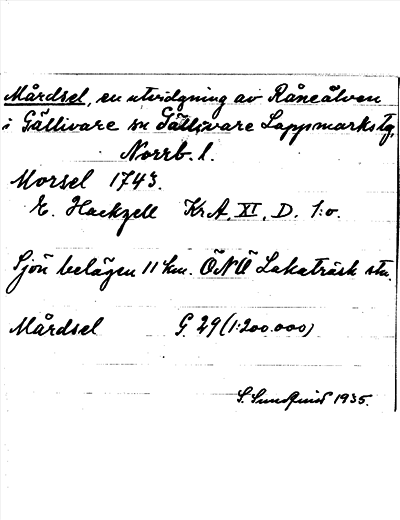 Mårdsel, en utvidgning av Råneälven
i Gällivare sn Gällivare Lappmarks tg,
Norrb. l.
Morsel 1743.
E. Hackzell KrA, XI, D. 1:o.
Sjön belägen 11 km. ÖNÖ Lakaträsk stn.
Mårdsel G. 29 (1:200.000)
S. Sundquist 1935.